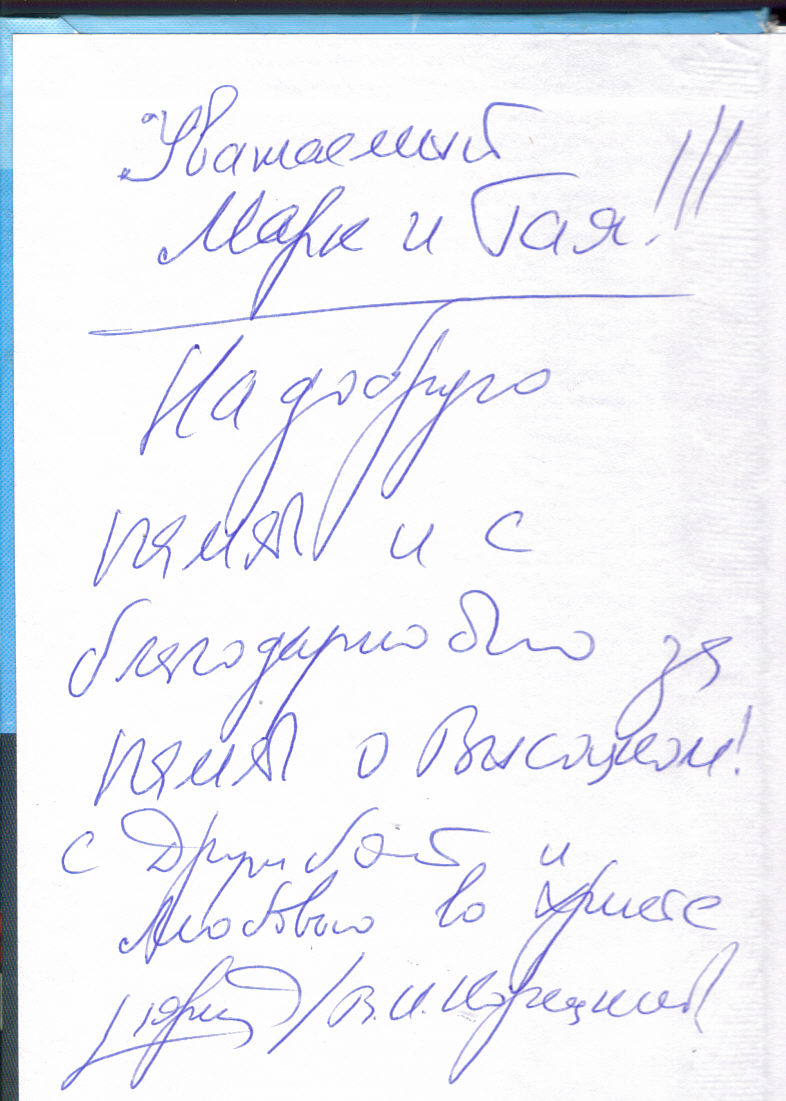 Уважаемый
Марк и Тая!!!
На добрую
память и с
благодарностью за
память о Высоцком!
С Дружбой и
Любовью во Христе
/В.И. Корецкий